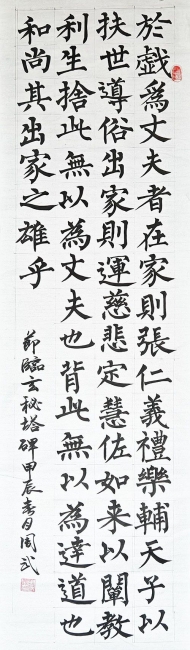 於戲為丈夫者在家則張仁義禮樂輔天子以
扶世導俗出家則運慈悲定慧佐如来以闡教
利生捨此無以為丈夫也背此無以為達道也
和尚其出家之雄乎
節臨玄秘塔碑甲辰春月周武